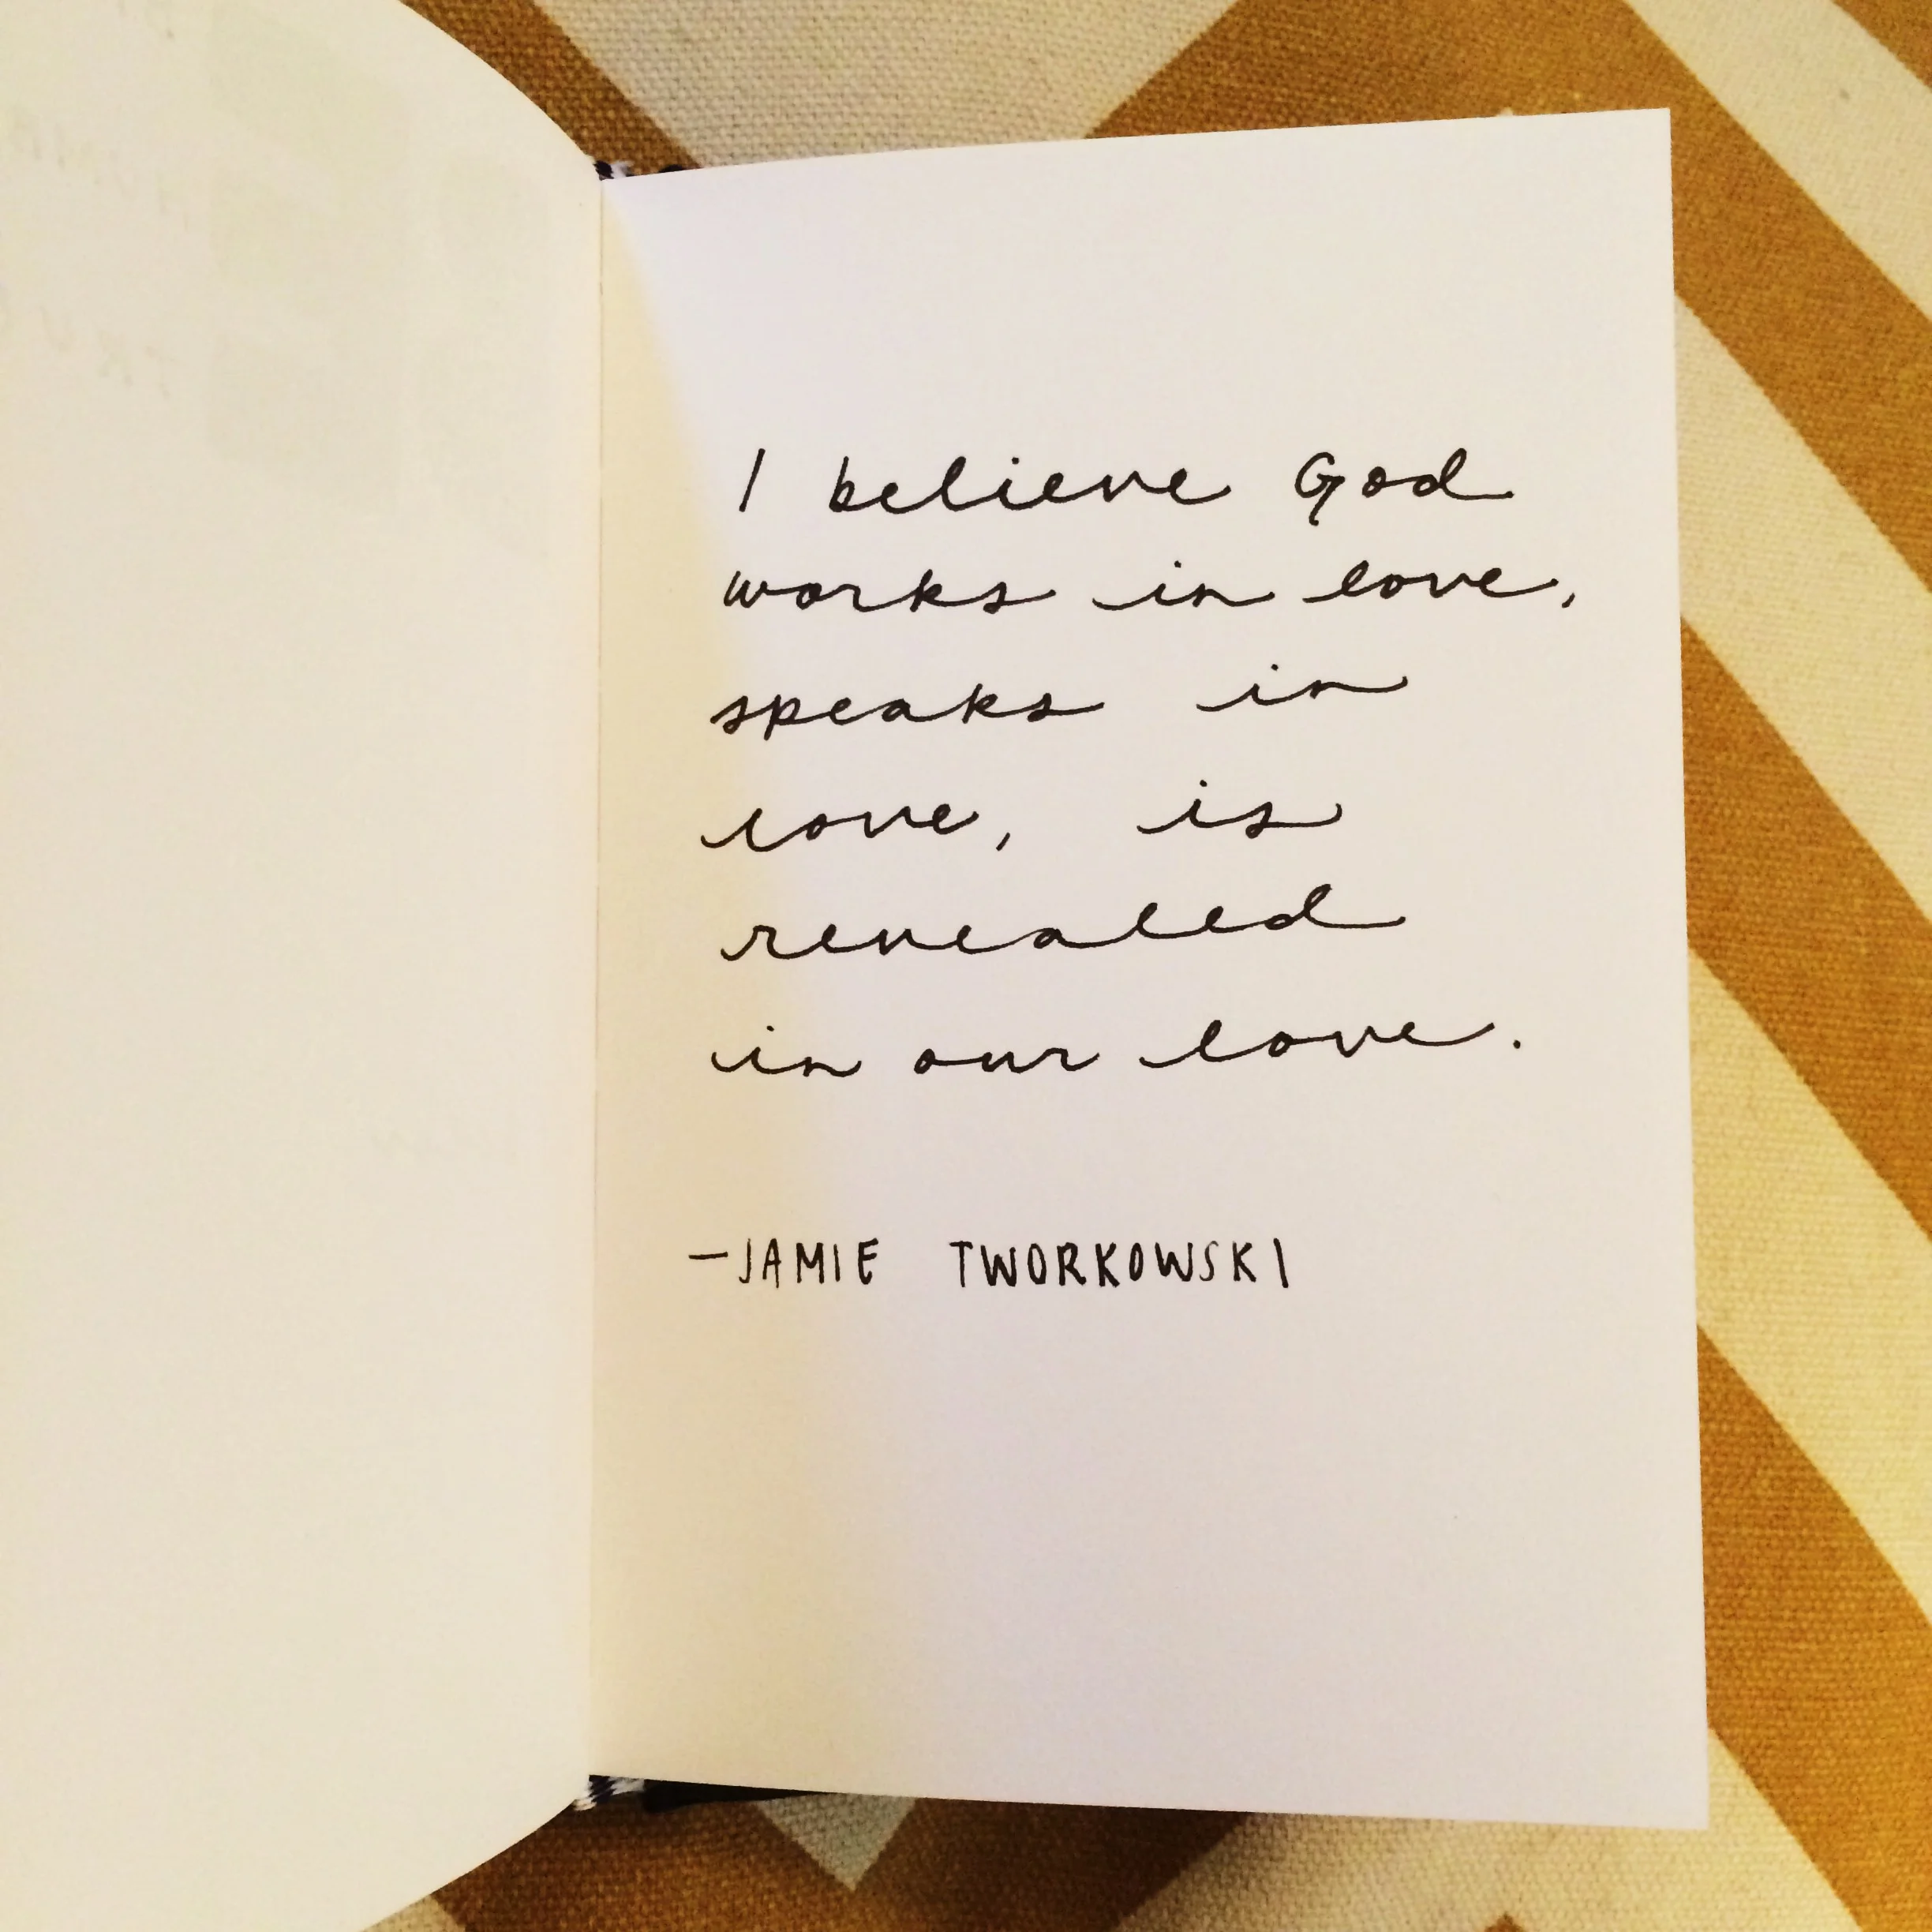 I believe God
works in love,
speaks in
love, is
revealed
in our love.
—JAMIE TWORKOWSKI